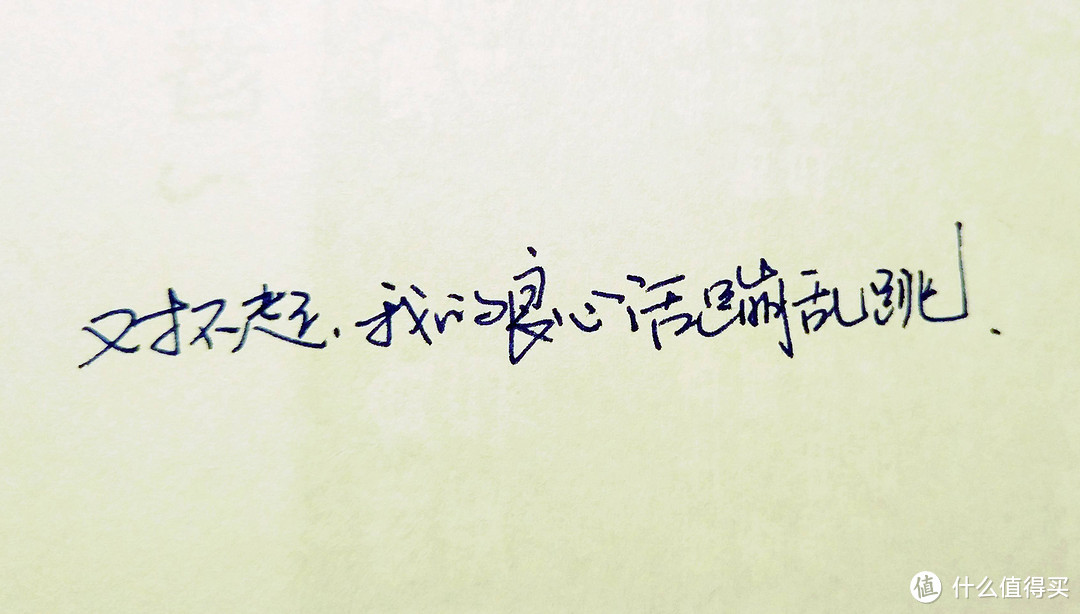 对不起.我的良心活蹦乱跳.
值 什么值得买